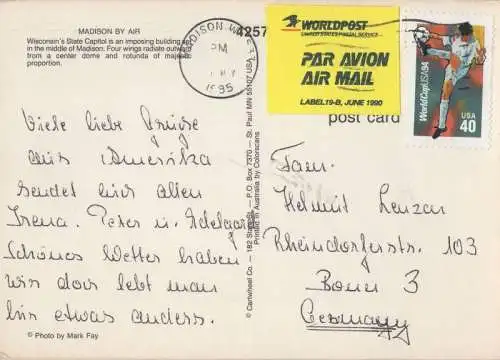 MADISON BY AIR
Wisconsin's State Capitol is an imposing building set
in the middle of Madison. Four wings radiate outward
from a center dome and rotunda of majestic
proportion.
MADISON WI
PM
1995
4257
WORLDPOST
UNITED STATES POSTAL SERVICE
PAR AVION
AIR MAIL
LABEL 19-B, JUNE 1990
World Cup USA 94
USA
40
post card
Viele liebe Grüße
aus Amerika
sendet euch allen
Irena. Peter u. Edelgard
Schönes Wetter haben
wir doch lebt man
hir etwas anders.
© Photo by Mark Fay
© Cartwheel Co. — 182 State St. — P.O. Box 7370 — St. Paul MN 55107 USA
Printed in Australia by Colorscans
Fam.
Helmut Lenzar
Rheindorferstr. 103
Bonn 3
Germany